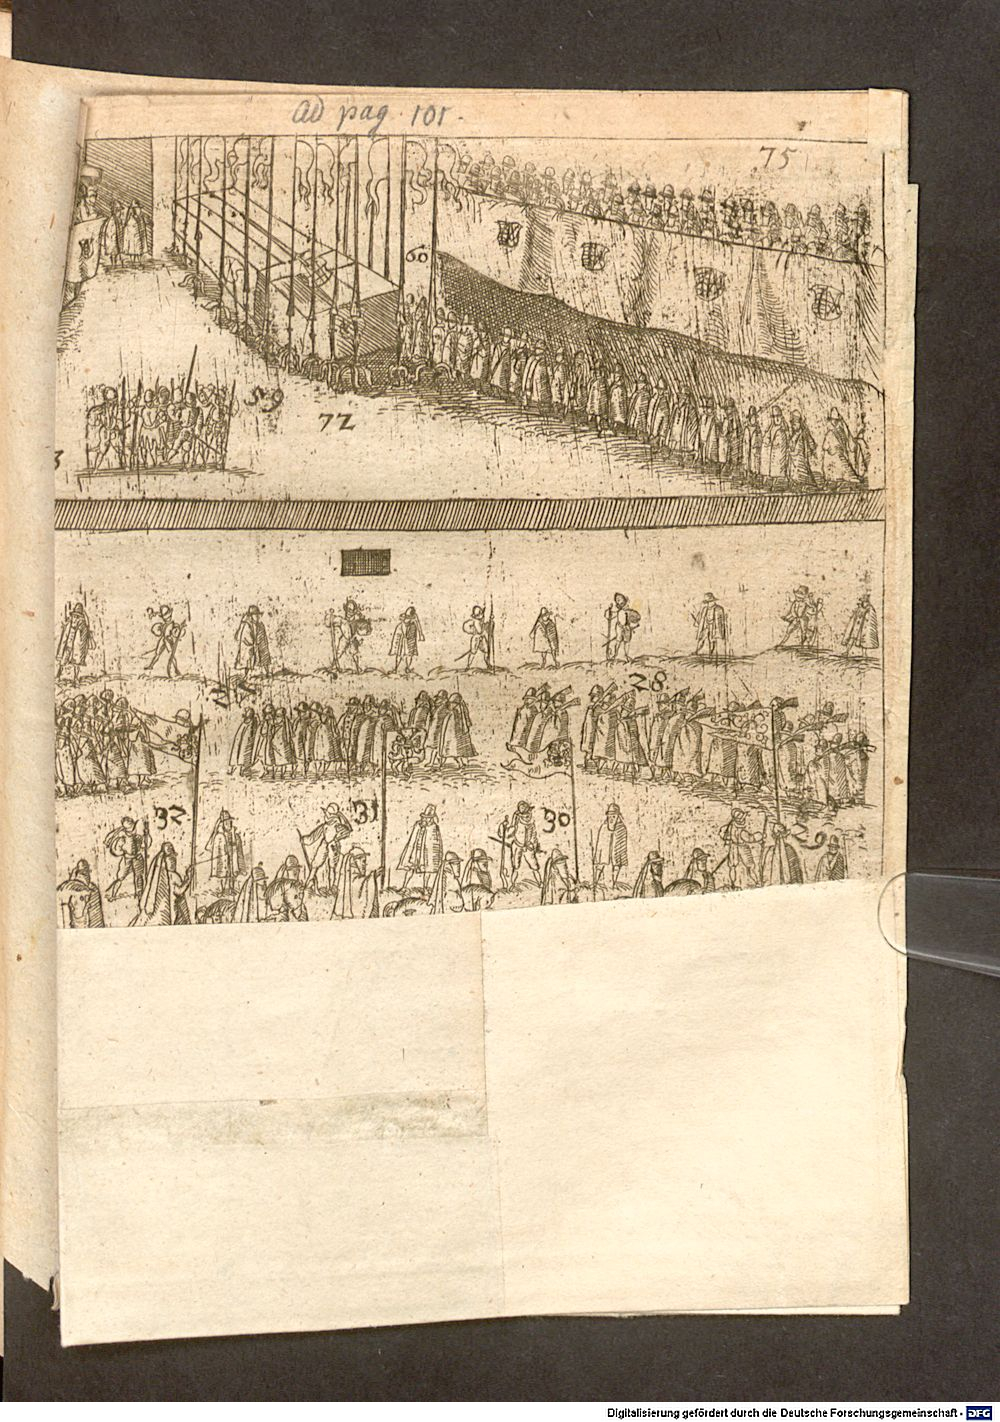 ad pag. 101.
75
60
59
72
3
28
32
31
30
29
Digitalisierung gefördert durch die Deutsche Forschungsgemeinschaft - DFG